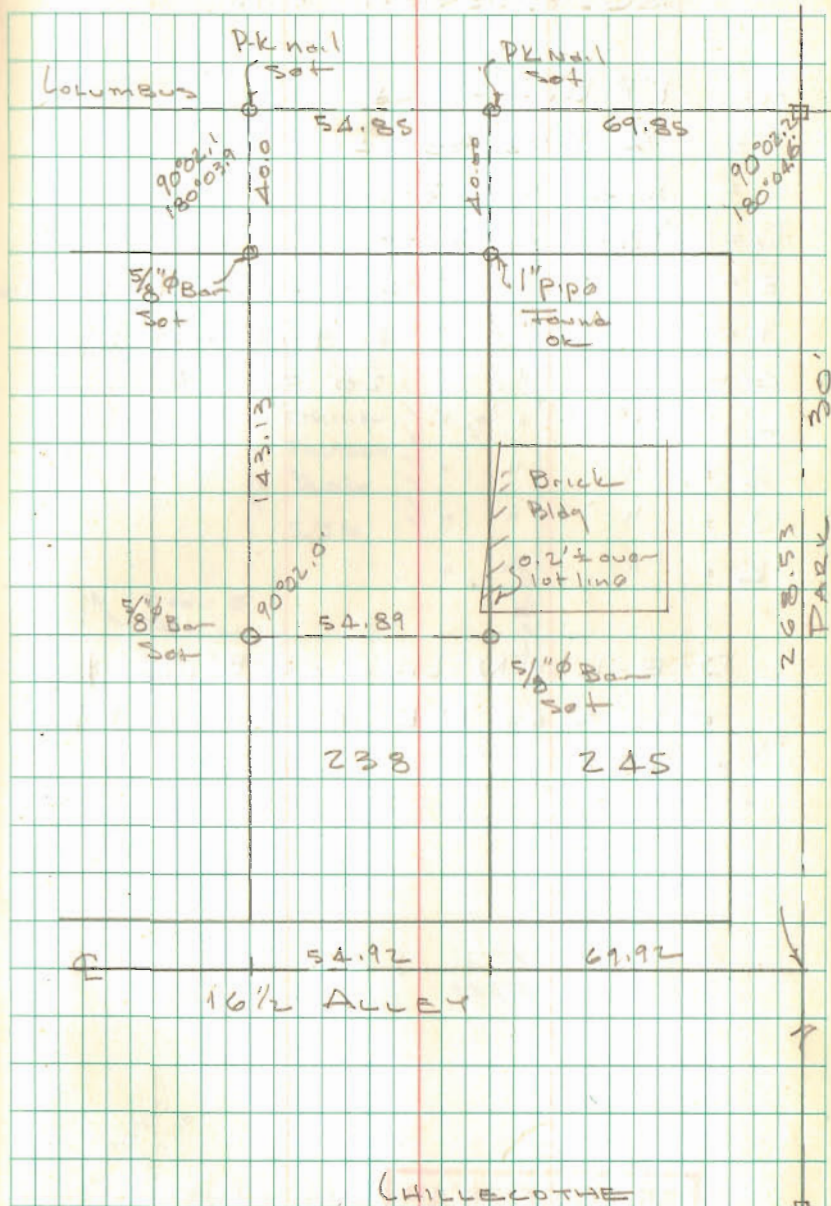 P-K nail
set
PK Nail
set
Columbus
54.85
69.85
90°02.1
180°03.9
40.0
40.00
90°02.2
180°04.6
5/8"ø Bar
Set
1" pipe
Found
ok
143.13
Brick
Bldg
0.2'± over
lot line
90°02.0'
5/8"ø Bar
Set
54.89
5/8"ø Bar
set
268.53
PARK 30'
238
245
℄
54.92
69.92
16 1/2 ALLEY
CHILLECOTHE